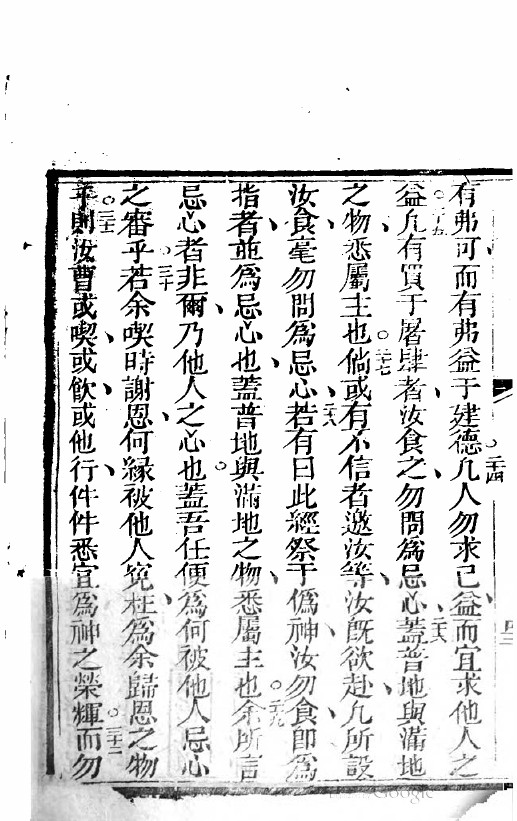 有弗可而有弗益于建德○二十四凡人勿求己益而宜求他人之
益○二十五凡有買于屠肆者汝食之勿問爲忌心○二十六蓋普地與滿地
之物悉屬主也○二十七倘或有不信者邀汝等汝既欲赴凡所設
汝食毫勿問爲忌心○二十八若有曰此經祭于僞神汝勿食卽爲
指者並爲忌心也蓋普地與滿地之物悉屬主也○二十九余所言
忌心者非爾乃他人之心也蓋吾任便爲何被他人忌心
之審乎○三十若余喫時謝恩何緣被他人冤枉爲余歸恩之物
乎○三十一則汝曹或喫或飲或他行件件悉宜爲神之榮輝○三十二而勿
Google